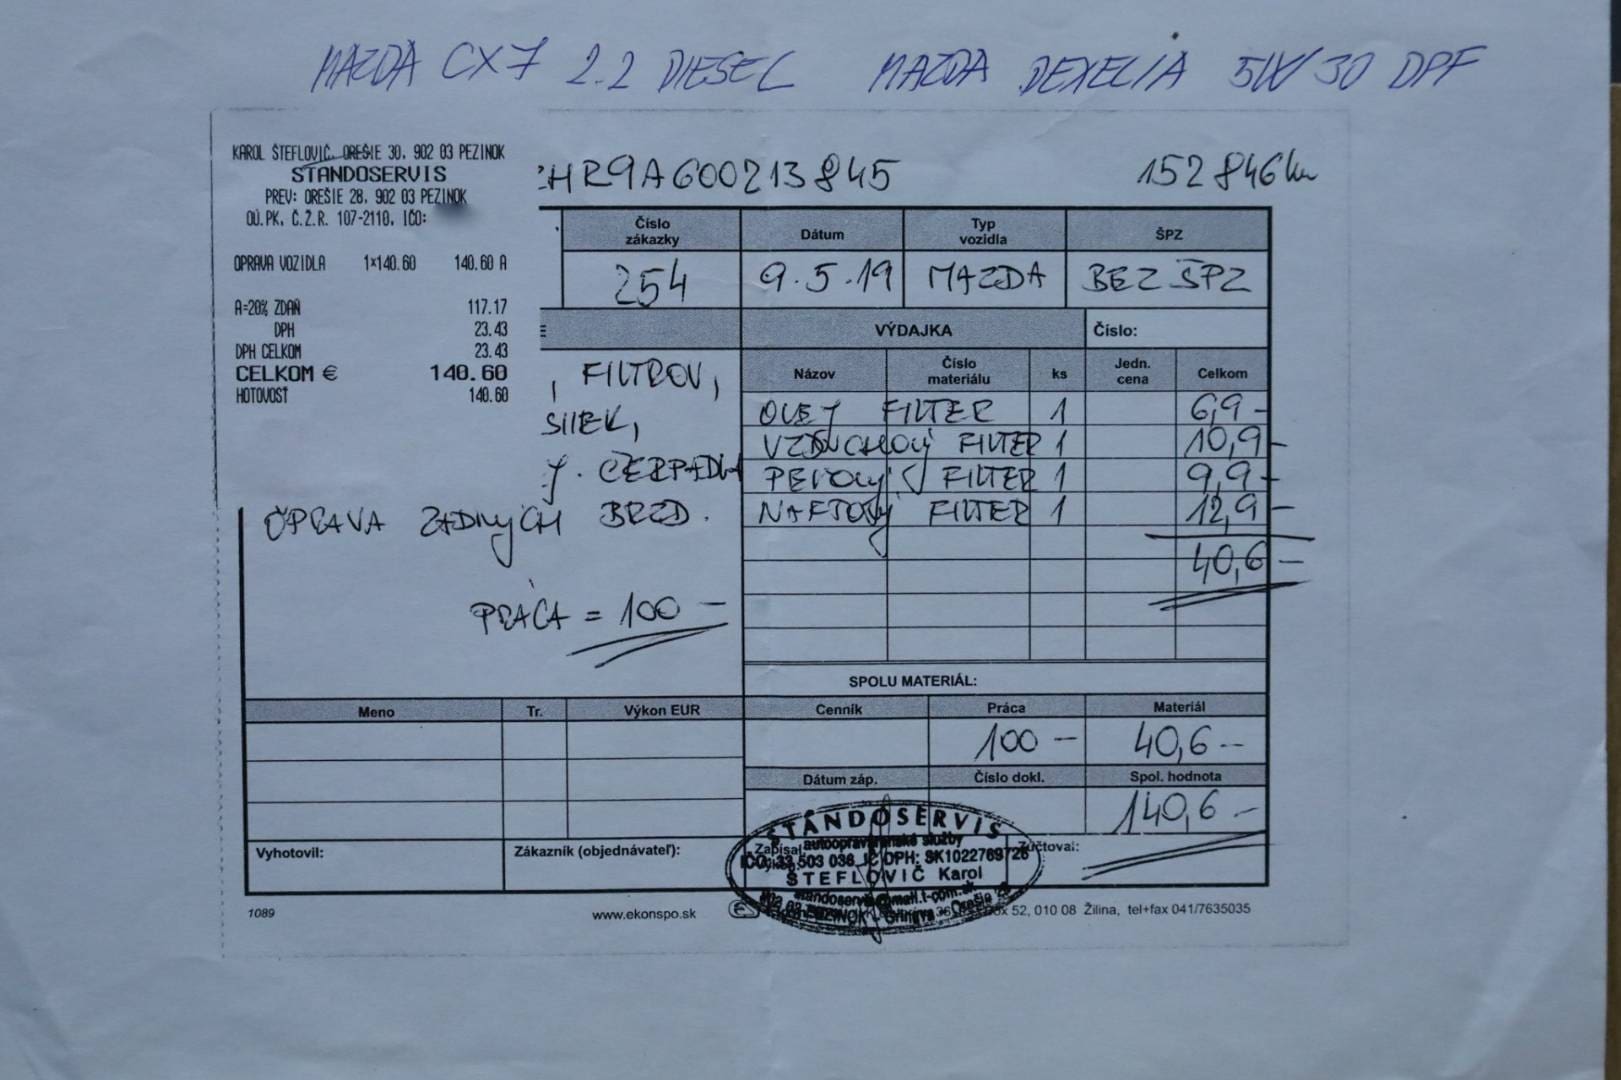 MAZDA CX7 2.2 DIESEL MAZDA DEXELIA 5W/30 DPF
KAROL ŠTEFLOVIČ, OREŠIE 30, 902 03 PEZINOK
STANDOSERVIS
PREV: OREŠIE 28, 902 03 PEZINOK
OÚ.PK, Č.Ž.R. 107-2110, IČO:
OPRAVA VOZIDLA 1×140.60 140.60 A
A=20% ZDAŇ 117.17
DPH 23.43
DPH CELKOM 23.43
CELKOM € 140.60
HOTOVOSŤ 140.60
HR9A600213845 152 846 km
Číslo zákazky Dátum Typ vozidla ŠPZ
254 9.5.19 MAZDA BEZ ŠPZ
VÝDAJKA Číslo:
Názov Číslo materiálu ks Jedn. cena Celkom
, FILTROV,
OLEJ FILTER 1 6,9 -
VZDUCHOVÝ FILTER 1 10,9 -
PEĽOVÝ FILTER 1 9,9 -
NAFTOVÝ FILTER 1 12,9 -
40,6 -
. ČERPADLA
OPRAVA ZADNÝCH BRZD.
PRÁCA = 100 -
SPOLU MATERIÁL:
Meno Tr. Výkon EUR Cenník Práca Materiál
100 - 40,6 -
Dátum záp. Číslo dokl. Spol. hodnota
140,6 -
Vyhotovil: Zákazník (objednávateľ): Zapísal Zúčtoval:
STANDOSERVIS
autoopravárenské služby
IČO: 33 503 036 IČ DPH: SK1022769726
ŠTEFLOVIČ Karol
1089 www.ekonspo.sk 52, 010 08 Žilina, tel+fax 041/7635035